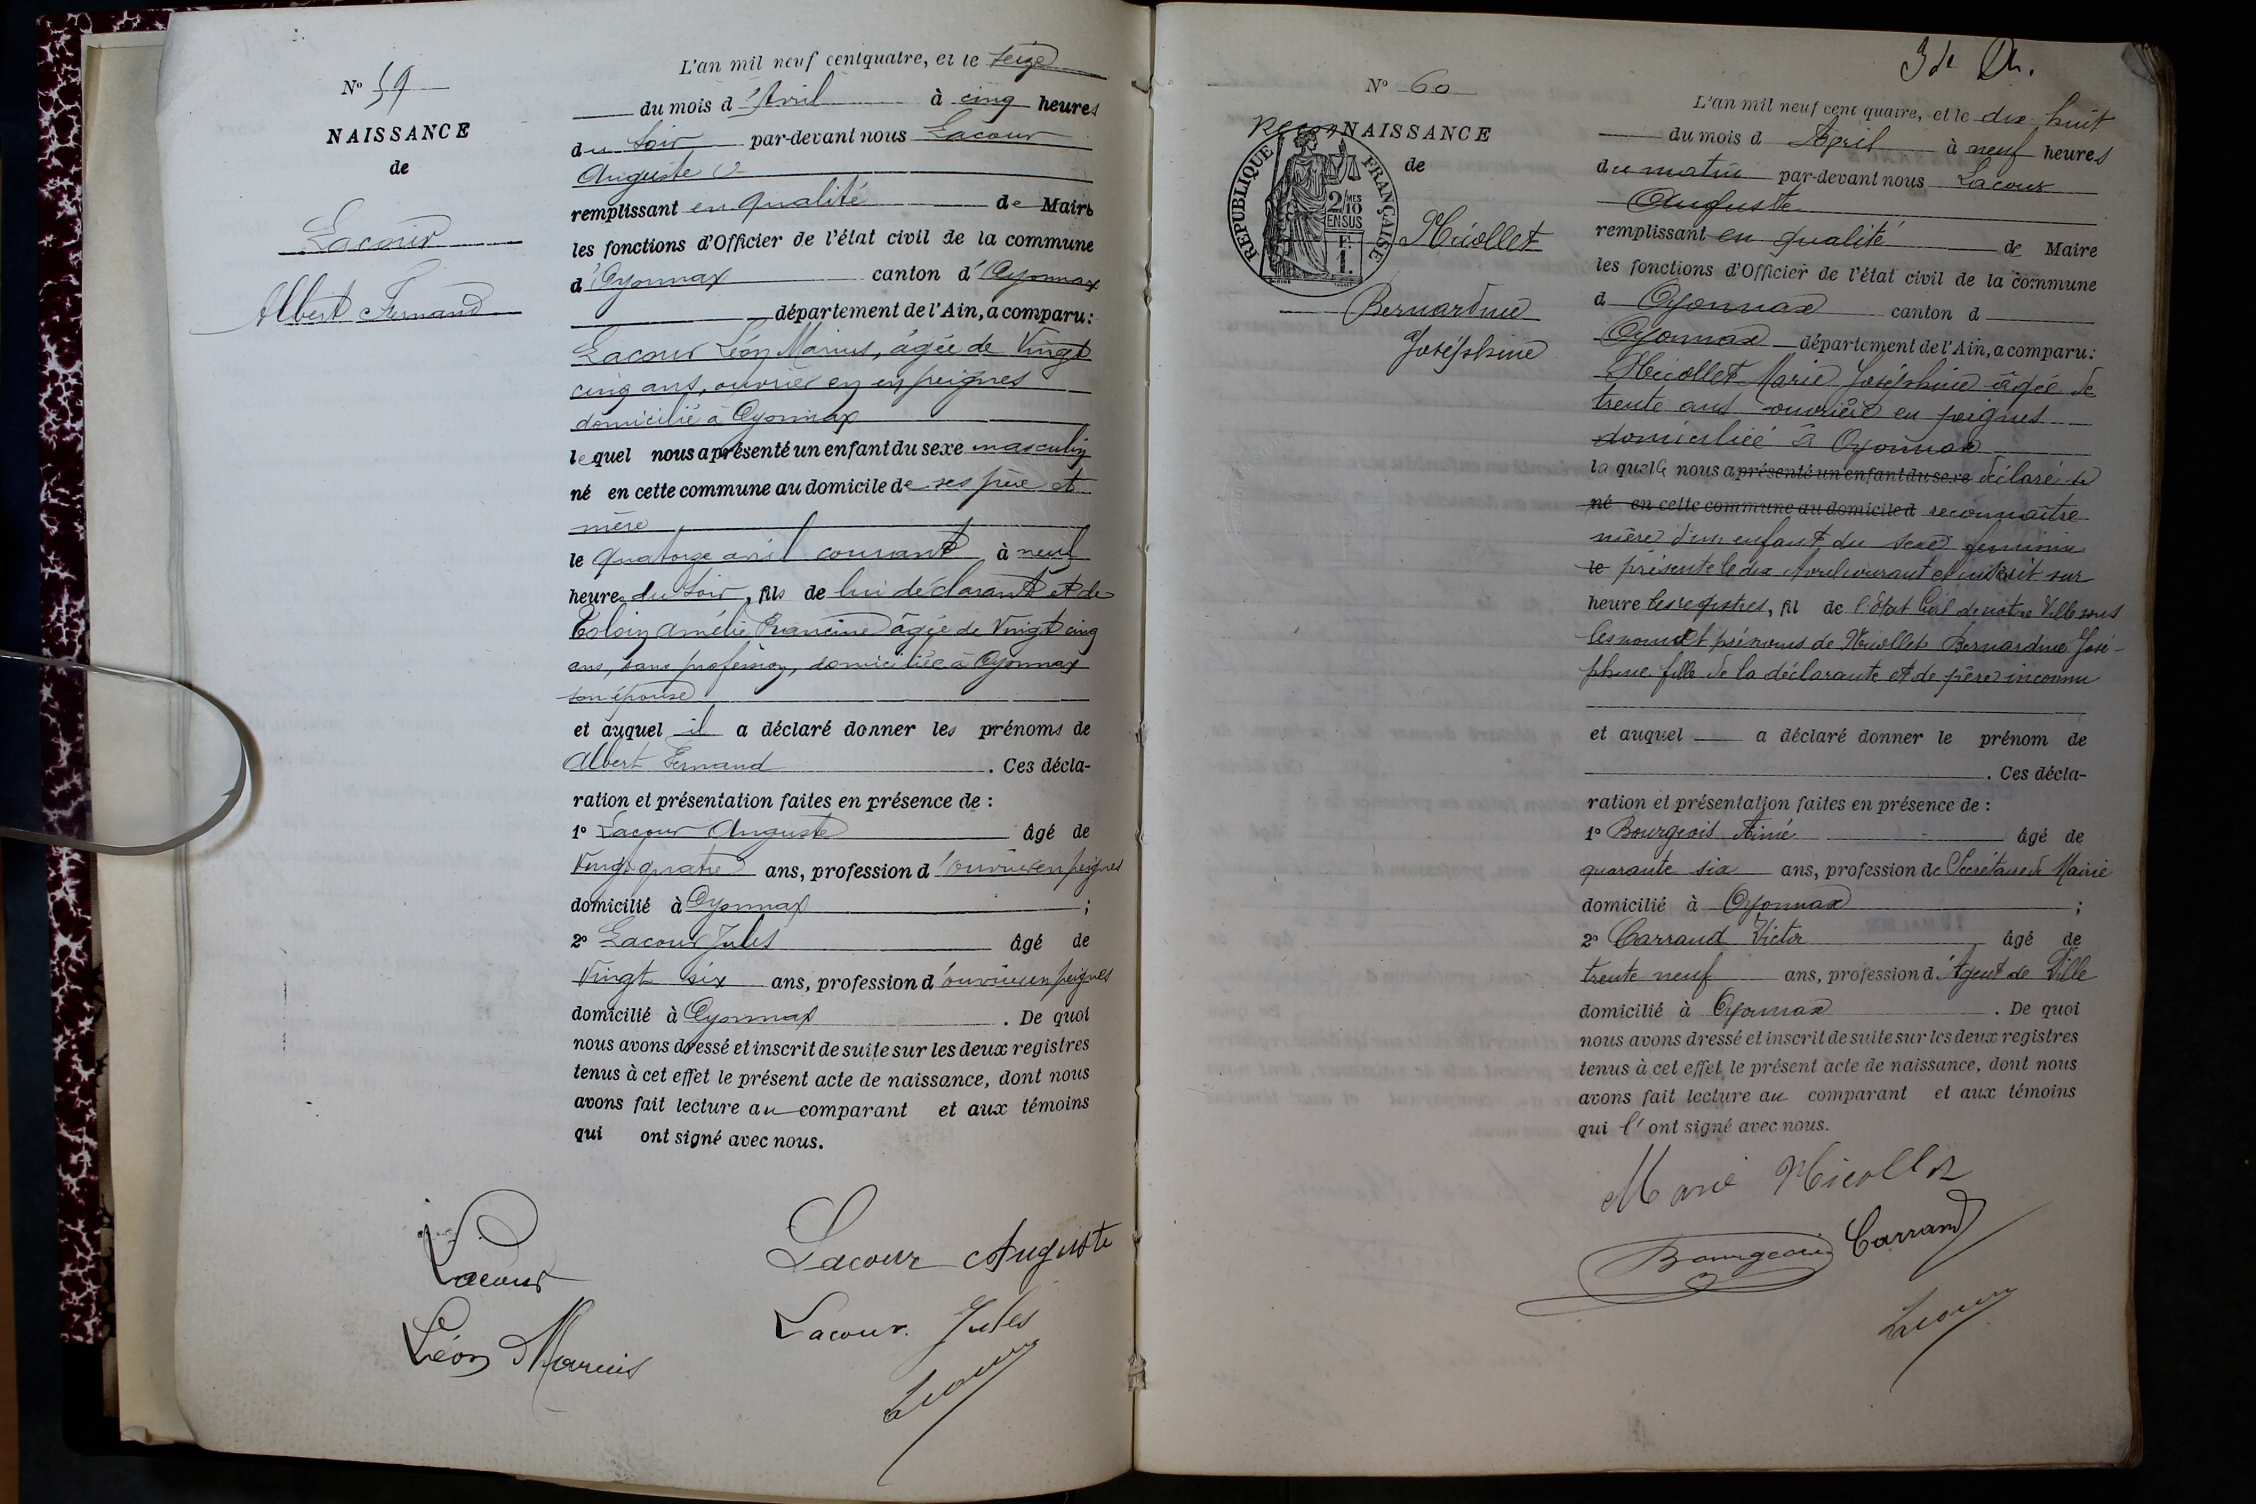 N° 59
NAISSANCE
de
Lacour
Albert Fernand
L'an mil neuf cent quatre, et le seize
du mois d'Avril à cinq heures
du soir par-devant nous Lacour
Auguste
remplissant en qualité de Maire
les fonctions d'Officier de l'état civil de la commune
d'Oyonnax canton d'Oyonnax
département de l'Ain, a comparu:
Lacour Léon Marius, âgée de Vingt
cinq ans, ouvrier en en peignes
domicilié à Oyonnax
lequel nous a présenté un enfant du sexe masculin
né en cette commune au domicile de ses père et
mère
le quatorze avril courant à neuf
heures du soir, fils de lui déclarant et de
Amélie Francine âgée de Vingt cinq
ans, sans profession, domiciliée à Oyonnax
son épouse
et auquel il a déclaré donner les prénoms de
Albert Fernand. Ces décla-
ration et présentation faites en présence de :
1° Lacour Auguste âgé de
Vingt quatre ans, profession d'ouvrier en peignes
domicilié à Oyonnax ;
2° Lacour Jules âgé de
Vingt six ans, profession d'ouvrier en peignes
domicilié à Oyonnax. De quoi
nous avons dressé et inscrit de suite sur les deux registres
tenus à cet effet le présent acte de naissance, dont nous
avons fait lecture au comparant et aux témoins
qui ont signé avec nous.
Lacour
Léon Marius
Lacour Auguste
Lacour. Jules
Lacour
N° 60
Recon NAISSANCE
de
RÉPUBLIQUE FRANÇAISE
2/10 MES
EN SUS
F.
1.
Nicollet
Bernardine
Joséphine
L'an mil neuf cent quatre, et le dix huit
du mois d Avril à neuf heures
du matin par-devant nous Lacour
Auguste
remplissant en qualité de Maire
les fonctions d'Officier de l'état civil de la commune
d Oyonnax canton d
Oyonnax département de l'Ain, a comparu:
Nicollet Marie Joséphine âgée de
trente ans ouvrière en peignes
domiciliée à Oyonnax
la quelle nous a présenté un enfant du sexe déclaré se
né en cette commune au domicile d reconnaître
mère d'un enfant du sexe féminin
le présenté le dix Avril courant et inscrit sur
heure les registres, fil de l'Etat Civil de notre Ville sous
les nom et prénoms de Nicollet Bernardine José-
phine fille de la déclarante et de père inconnu
et auquel a déclaré donner le prénom de
. Ces décla-
ration et présentation faites en présence de :
1° Bourgeois Aimé âgé de
quarante six ans, profession de Secrétaire de Mairie
domicilié à Oyonnax ;
2° Carrand Victor âgé de
trente neuf ans, profession d'Agent de Ville
domicilié à Oyonnax. De quoi
nous avons dressé et inscrit de suite sur les deux registres
tenus à cet effet le présent acte de naissance, dont nous
avons fait lecture au comparant et aux témoins
qui l'ont signé avec nous.
Marie Nicollet
Bourgeois Carrand
Lacour